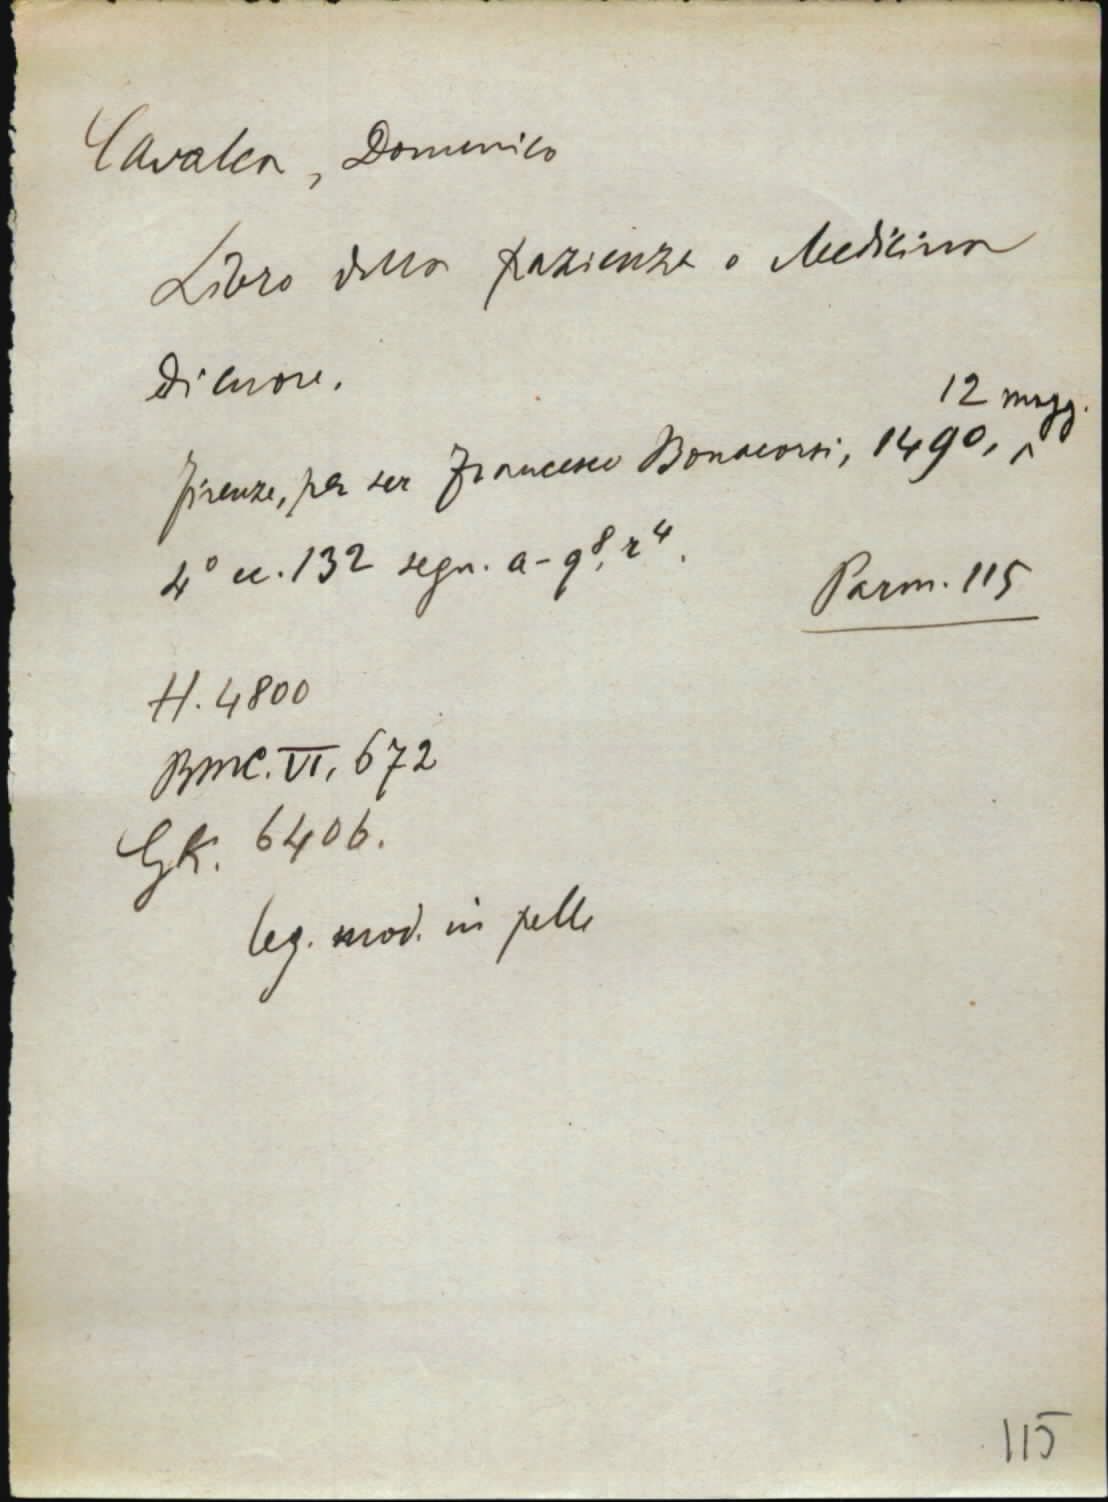 Cavalca, Domenico
Libro della pazienza o Medicina
di cuore.
Firenze, per ser Francesco Bonacorsi, 1490, 12 magg.
4° cc. 132 segn. a-q⁸, r⁴.
Parm. 115
H. 4800
BMC. VI, 672
GK. 6406.
leg. mod. in pelle
115